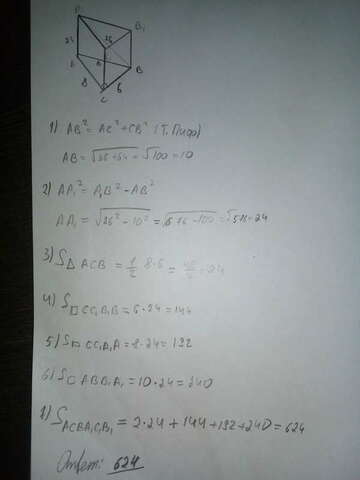 B₁
26
A
B
8
6
C
1) AB² = AC² + CB² (Т. Пиф)
AB = √36+64 = √100 = 10
2) AA₁² = A₁B² - AB²
AA₁ = √26² - 10² = √676 - 100 = √576 = 24
3) S△ ACB = 1/2 8·6 = 48/2 = 24
4) S□ CC₁B₁B = 6·24 = 144
5) S□ CC₁A₁A = 8·24 = 192
6) S□ ABB₁A₁ = 10·24 = 240
7) S ACBA₁C₁B₁ = 2·24 + 144 + 192 + 240 = 624
Ответ: 624